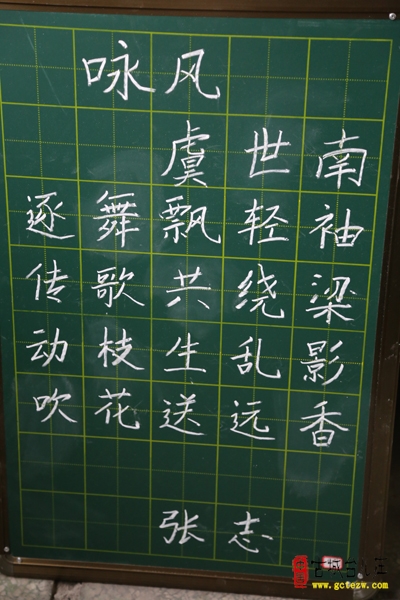 咏风
虞世南
逐舞飘轻袖
传歌共绕梁
动枝生乱影
吹花送远香
张志
www.gctezw.com